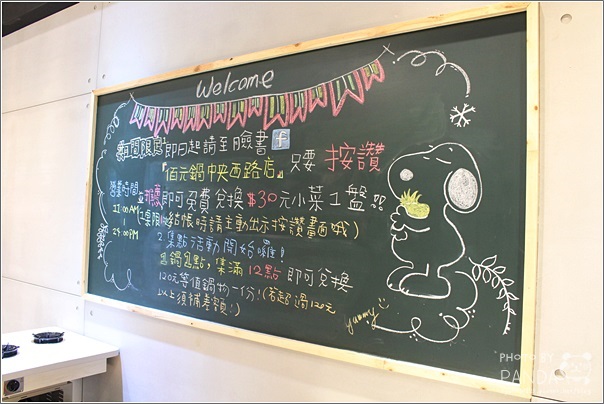 Welcome
期間限定 即日起請至臉書 f
『佰元鍋中央西路店』只要 按讚
營業時間
11:00AM
24:00PM
推廣即可免費兌換 $30元小菜1盤!!
結帳時請主動出示按讚畫面哦)
2.集點活動開始囉!
1鍋1點,集滿 12點 即可兌換
120元等值鍋物一份!(若超過120元
以上須補差額!)
yummy
PHOTO BY
PANDA